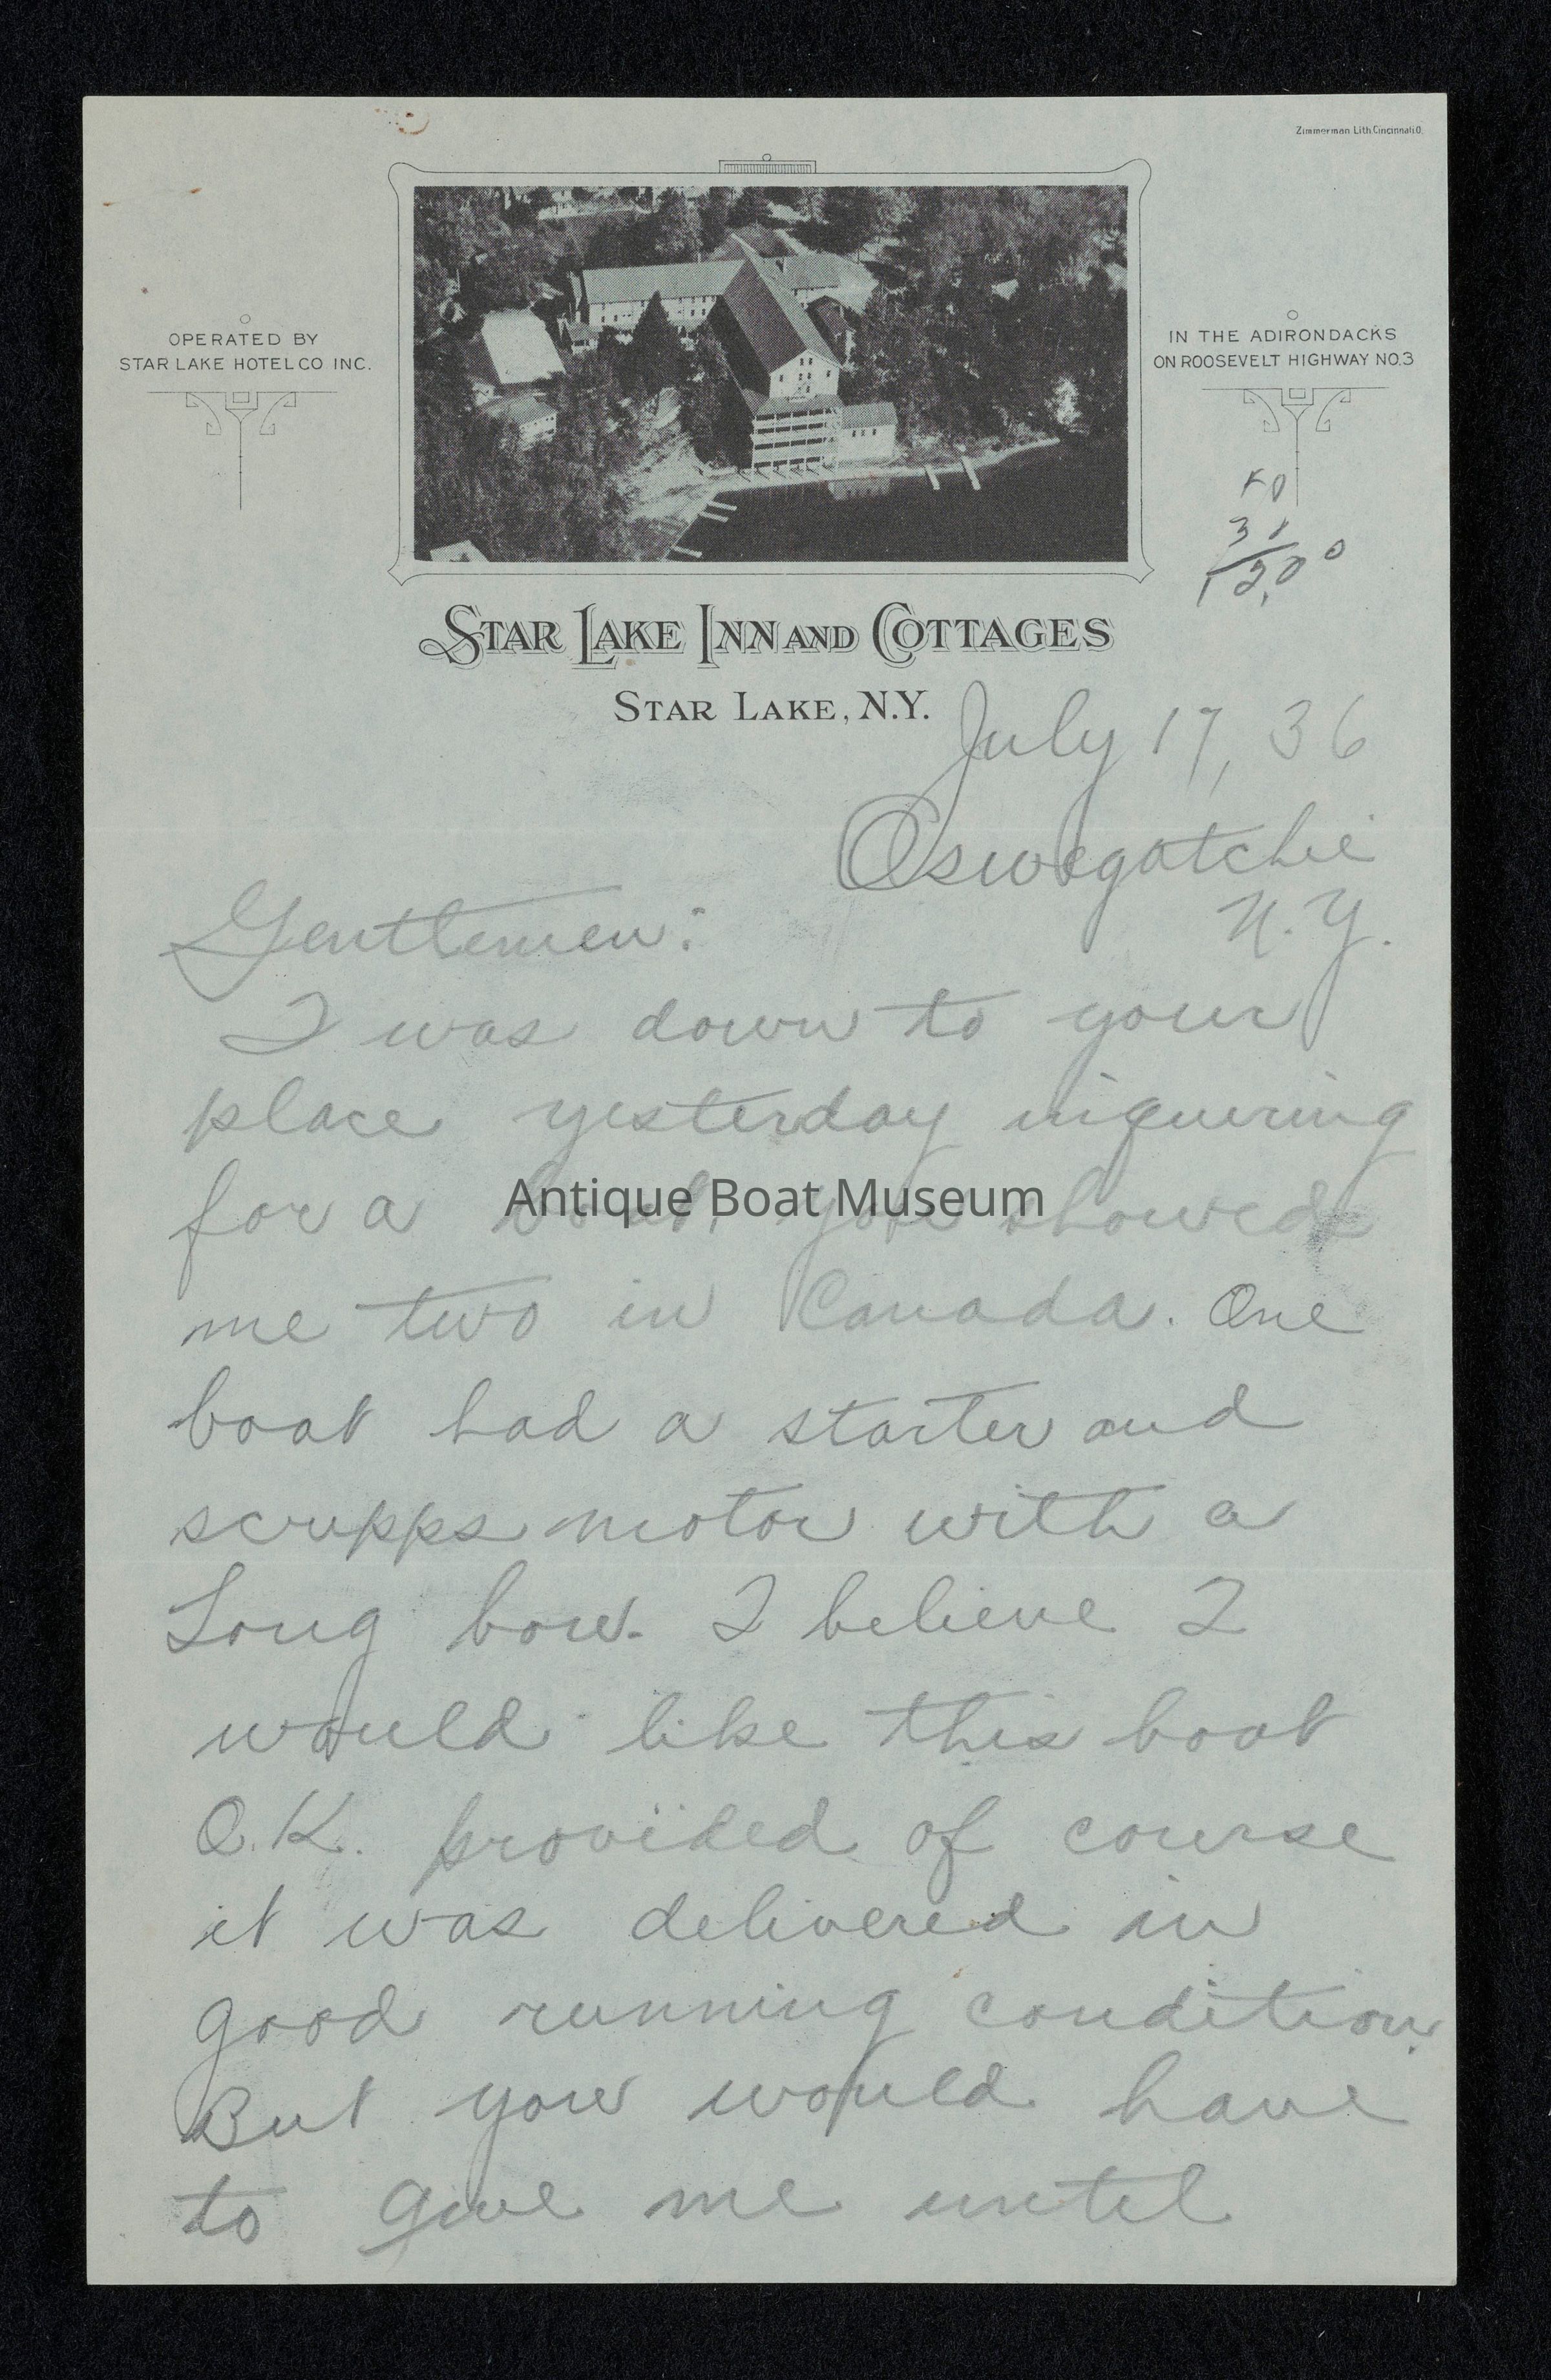 Zimmerman Lith. Cincinnati.O.
OPERATED BY
STAR LAKE HOTEL CO INC.
IN THE ADIRONDACKS
ON ROOSEVELT HIGHWAY NO.3
STAR LAKE INN AND COTTAGES
STAR LAKE, N.Y.
July 17, 36
Oswegatchie
N.Y.
Gentlemen:
I was down to your
place yesterday inquering
for a boat. You showed
Antique Boat Museum
me two in Canada. One
boat had a starter and
scrupps motor with a
Long bow. I believe I
would like this boat
O.K. provided of course
it was delivered in
good running condition.
But you would have
to give me until